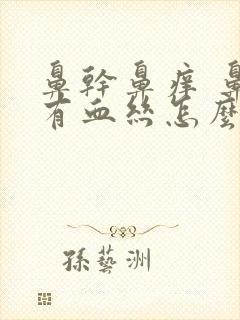 鼻幹鼻痒 鼻
有血丝怎麼
孫藝洲